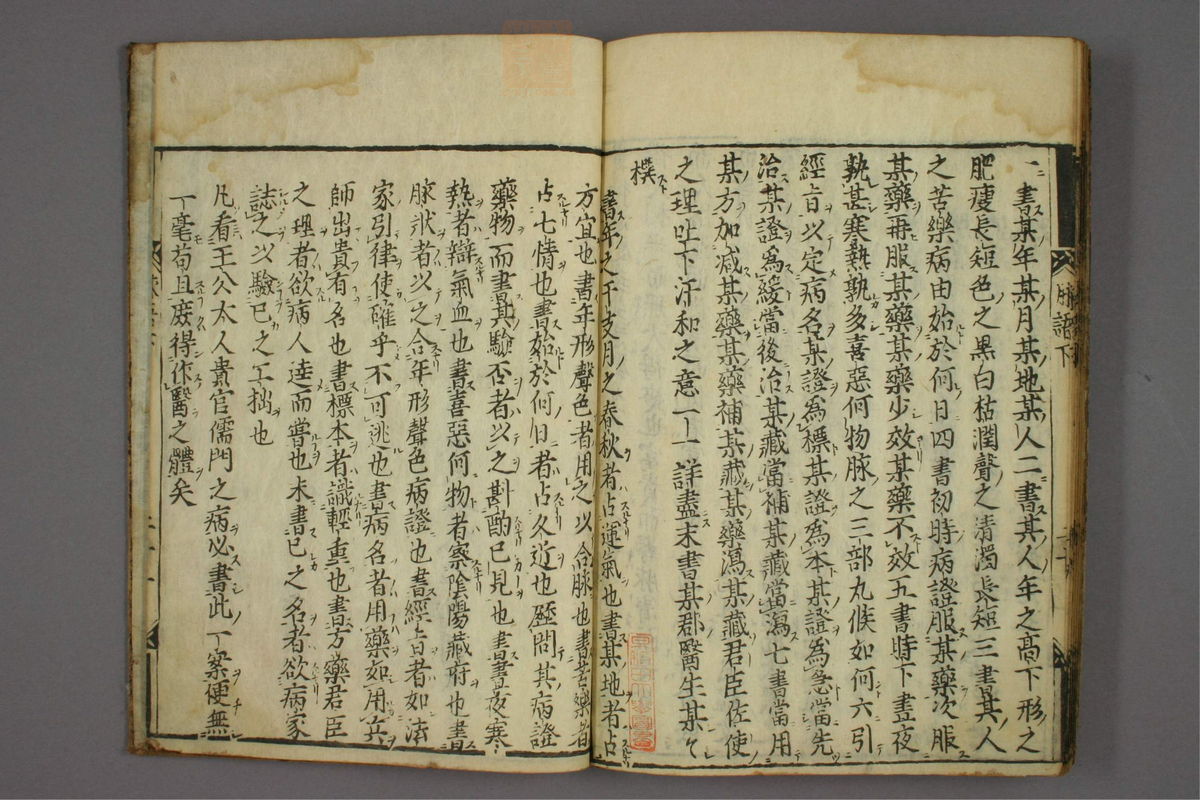 脉語下
一書某年某月某地某人二書其人年之高下形之
肥瘦長短色之黒白枯潤聲之清濁長短三書其人
之苦藥病由始於何日四書初時病證服某藥次服
某藥再服某藥某藥少效某藥不效五書時下晝夜
孰甚寒熱孰多喜惡何物脉之三部九候如何六引
經旨以定病名某證為標某證為本某證為急當先
治某證為緩當後治某藏當補某藏當瀉七書當用
某方加减某藥某藥補某藏某藥瀉某藏君臣佐使
之理吐下汗和之意一一詳盡末書某郡醫生某某
撰
書年之干支月之春秋者占運氣也書某地者占
方宜也書年形聲色者用之以合脉也書苦樂者
占七情也書始於何日者占久近也歷問其病證
藥物而書其驗否者以之斟酌已見也書晝夜寒
熱者辯氣血也書喜惡何物者察陰陽藏府也書
脉狀者以之合年形聲色病證也書經旨者如法
家引律使確乎不可逃也書病名者用藥如用兵
師出貴有名也書標本者識輕重也書方藥君臣
之理者欲病人達而嘗也末書已之名者欲病家
誌之以驗已之工拙也
凡看王公大人貴官儒門之病必書此一案便無
一毫苟且庶得作醫之體矣